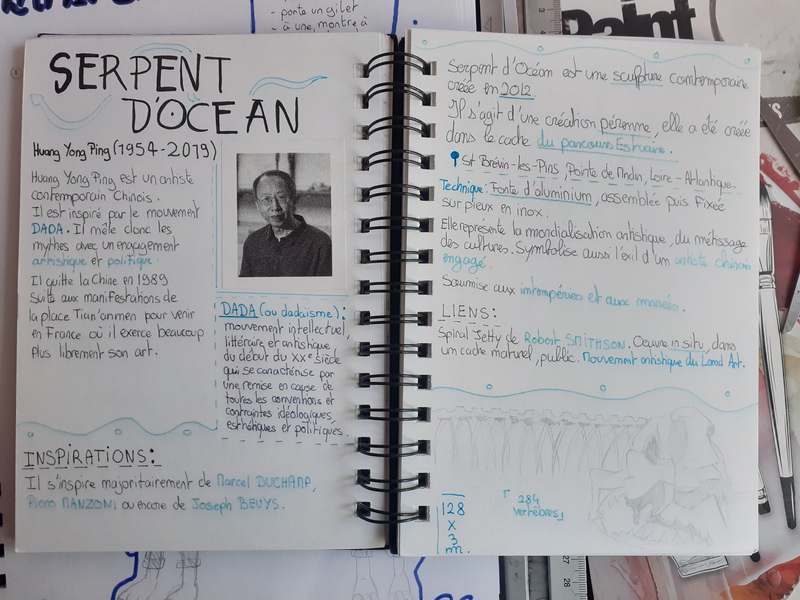 porte un gilet
- à une montre à
Paint
SERPENT
D'OCEAN
Huang Yong Ping (1954-2019)
Huang Yong Ping est un artiste
contemporain Chinois.
Il est inspiré par le mouvement
DADA. Il mêle donc les
mythes avec un engagement
artistique et politique.
Il quitte la Chine en 1989
suite aux manifestations de
la place Tian'anmen pour venir
en France où il exerce beaucoup
plus librement son art.
DADA (ou dadaïsme):
mouvement intellectuel,
littéraire et artistique
du début du XXe siècle
qui se caractérise par
une remise en cause de
toutes les conventions et
contraintes idéologiques,
esthétiques et politiques.
INSPIRATIONS:
Il s'inspire majoritairement de Marcel DUCHAMP,
Piero MANZONI ou encore de Joseph BEUYS.
Serpent d'Océan est une sculpture comtemporaine
créée en 2012
Il s'agit d'une création pérenne, elle a été créée
dans le cache du parcours Estuaire.
St Brévin-les-Pins, Pointe de Mindin, Loire-Atlantique.
Technique: Fonte d'aluminium, assemblée puis Fixée
sur pieux en inox.
Elle représente la mondialisation artistique, du métissage
des cultures. Symbolise aussi l'éxil d'un artiste chinois
engagé.
Soumise aux intempéries et aux marées.
LIENS:
Spiral Jetty de Robert SMITHSON. Oeuvre in situ, dans
un cadre naturel, public. Mouvement artistique du Land Art.
128
x
3
m.
284
vertèbres
28
27